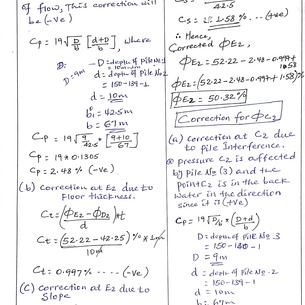 of flow, This correction will
be (-Ve)
Cp = 19√D/b [d+D/b], where
D = 9m
D = depth of Pile No.1
d = depth of Pile No.2
= 150-139-1
d = 10m
b' = 42.5m
b = 67m
Cp = 19√9/42.5 * [9+10/67]
Cp = 19*0.1305
Cp = 2.48 % (-Ve)
(b) Correction at E2 due to
Floor thickness.
Ct = (ΦE2 - ΦD2 / d)*t
Ct = (52.22 - 42.25)% * 1m / 10m
Ct = 0.997% ... (-Ve)
(C) Correction at E2 due to
Slope
42.5
Cs = 1.58% ... (+Ve)
∴ Hence,
Corrected ΦE2,
ΦE2 = 52.22-2.48-0.997+1.58
ΦE2 = (52.22-2.48-0.997+1.58)%
ΦE2 = 50.32%
Correction for ΦC2
(a) Correction at C2 due
to pile Interference.
pressure C2 is affected
by Pile No (3) and the
point C2 is in the back
water in the direction
since it is (+Ve)
Cp = 19√D/b' * (D+d/b)
D = depth of Pile No.3
= 150-140-1
D = 9m
d = depth of Pile No.2
= 150-139-1
d = 10m
b = 67m